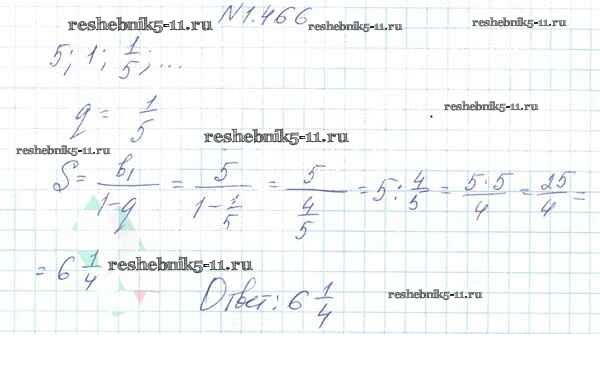 N1.466
reshebnik5-11.ru
reshebnik5-11.ru
reshebnik5-11.ru
5; 1; 1/5; ...
q = 1/5
reshebnik5-11.ru
reshebnik5-11.ru
reshebnik5-11.ru
S = b₁/(1-q) = 5/(1-1/5) = 5/(4/5) = 5 : 4/5 = 5·5/4 = 25/4 =
= 6 1/4
reshebnik5-11.ru
Ответ: 6 1/4
reshebnik5-11.ru